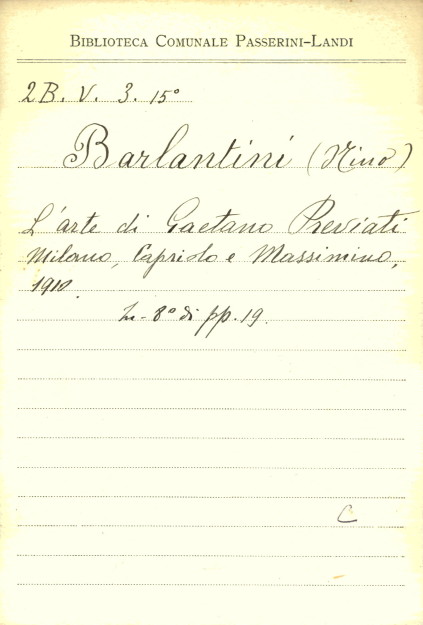 BIBLIOTECA COMUNALE PASSERINI-LANDI
2B. V. 3. 15°
Barlantini (Nino)
L'arte di Gaetano Previati.
Milano, Capriolo e Massimino,
1910.
In-8° di pp. 19.
C